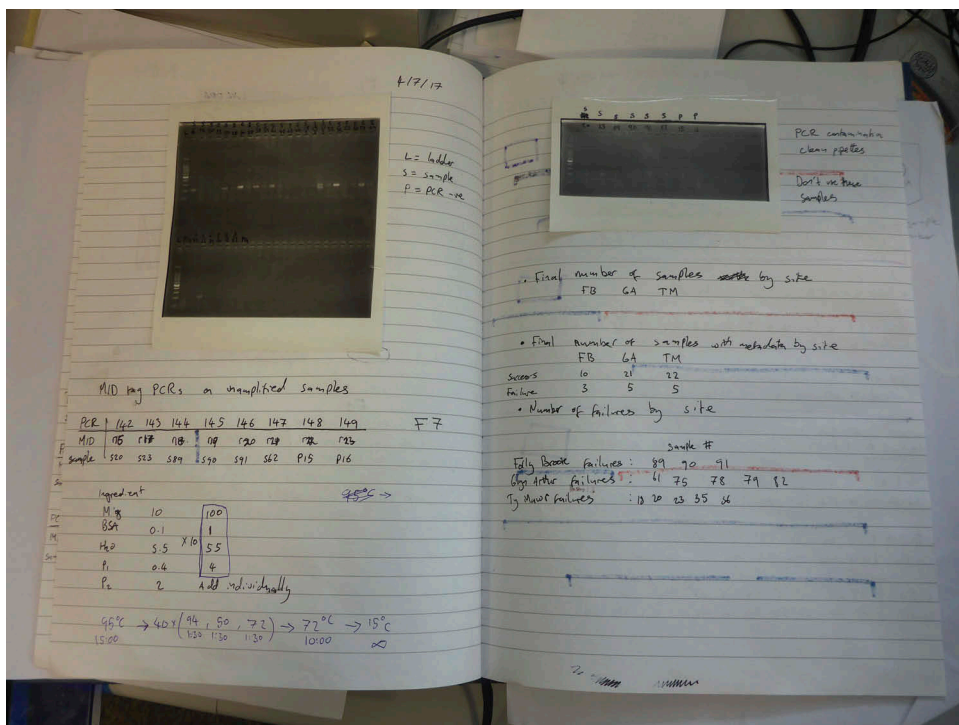 4/7/17
L = ladder
S = sample
P = PCR -ve
MID tag PCRs on unamplified samples
PCR 142 143 144 145 146 147 148 149 F7
MID r20 r23
Sample S20 S23 S89 S90 S91 S62 P15 P16
Ingredient
95°C →
Mix 10 100
BSA 0.1 1
H2O 5.5 x10 55
P1 0.4 4
P2 2 Add individually
95°C → 40 x (94, 50, 72) → 72°C → 15°C
15:00 1:30 1:30 1:30 10:00 ∞
S S S S S S P P
PCR contamination
clean pipettes
Don't use these
samples
• Final number of samples by site
FB GA TM
• Final number of samples with metadata by site
FB GA TM
Success 10 21 22
Failure 3 5 5
• Number of failures by site
Sample #
Folly Brook failures: 89 90 91
Glyn Arthur failures: 61 75 78 79 82
Ty Mawr failures: 20 23 35 56